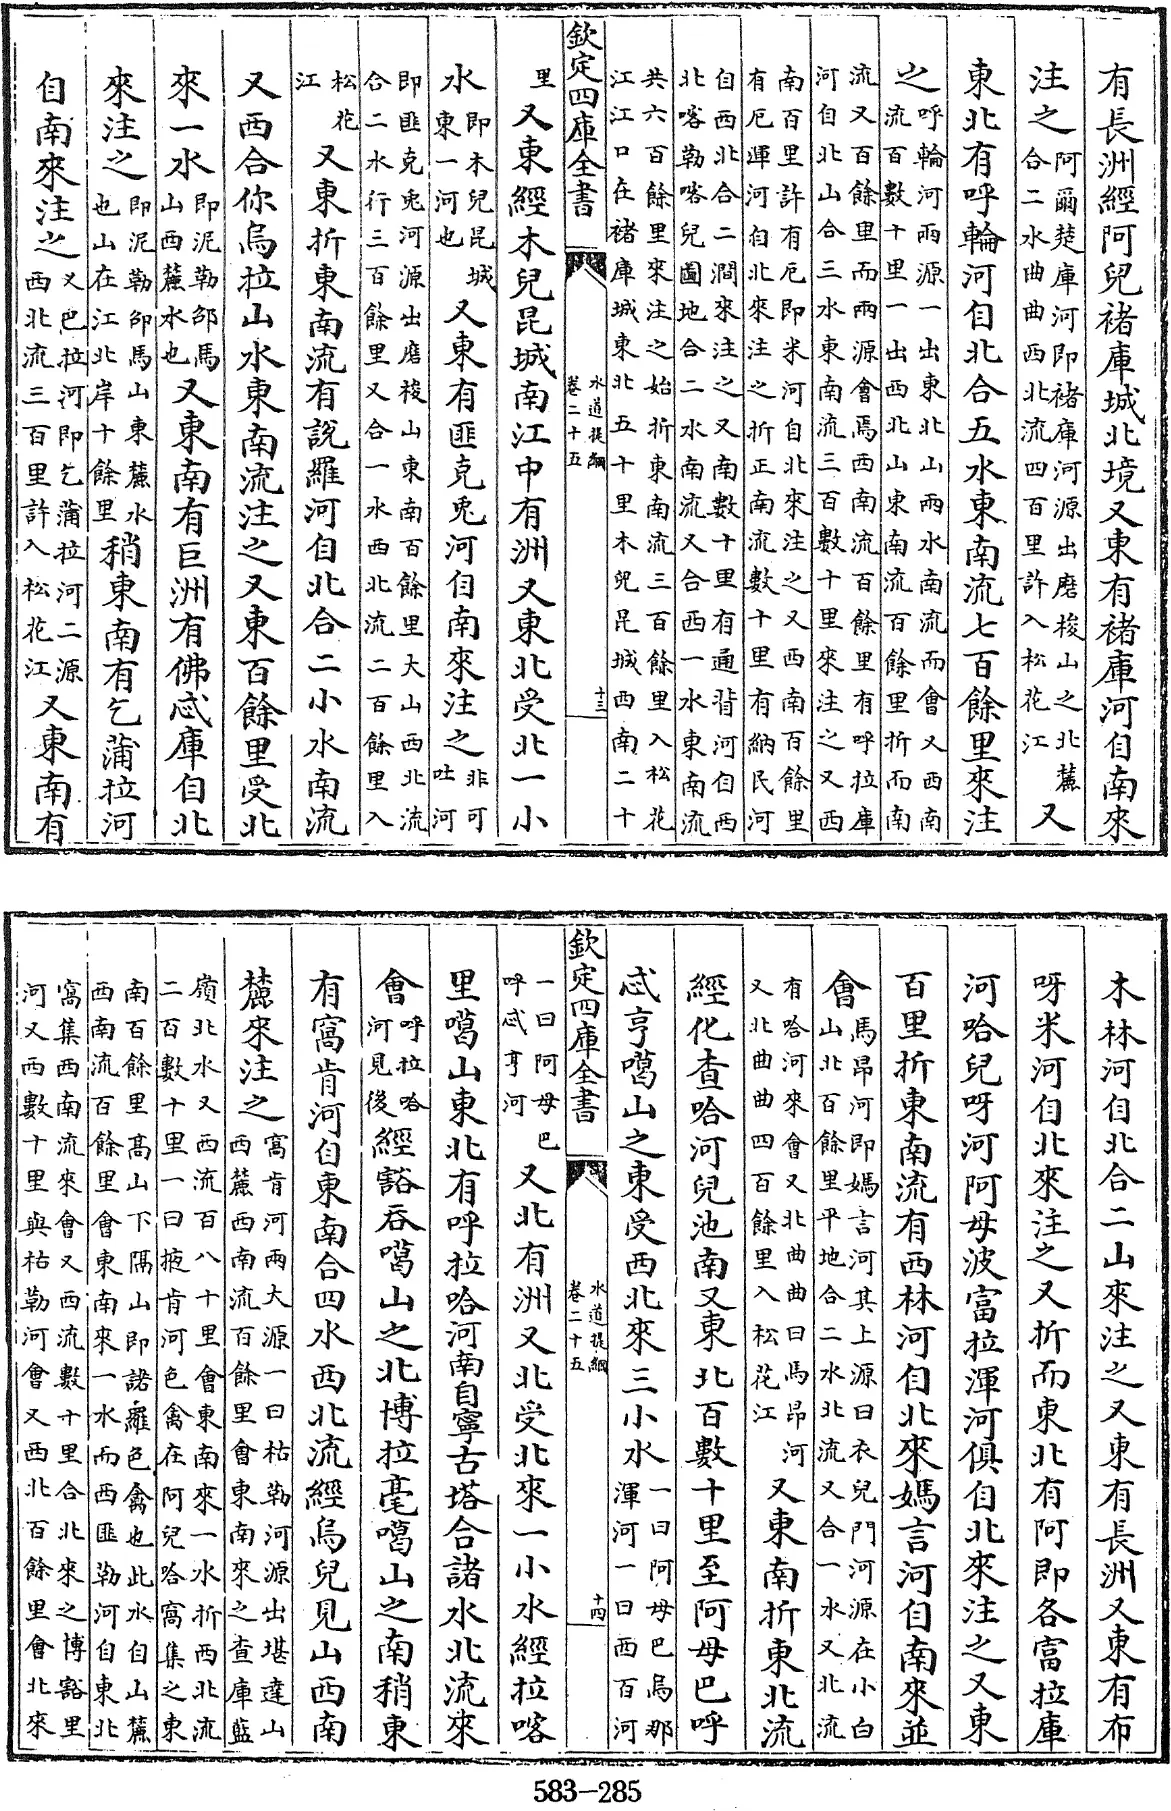 有長洲經阿兒褚庫城北境又東有褚庫河自南來
注之阿爾楚庫河即褚庫河源出磨梭山之北麓合二水曲曲西北流四百里許入松花江又
東北有呼輪河自北合五水東南流七百餘里來注
之呼輪河兩源一出東北山兩水南流而會又西南流百數十里一出西北山東南流百餘里折而南
流又百餘里而兩源會焉西南流百餘里有呼拉庫河自北山合三水東南流三百數十里來注之又西
南百里許有厄即米河自北來注之又西南百餘里有厄渾河自北來注之折正南流數十里有納民河
自西北合二澗來注之又南數十里有通背河自西北喀勒喀兒圖地合二水南流又合西一水東南流
共六百餘里來注之始折東南流三百餘里入松花江江口在褚庫城東北五十里木兒昆城西南二十
欽定四庫全書 水道提綱 卷二十五 十三
里又東經木兒昆城南江中有洲又東北受北一小
水即木兒昆城東一河也又東有匪克兎河自南來注之非可吐河
即匪克兎河源出磨梭山東南百餘里大山西北流合二水行三百餘里又合一水西北流二百餘里入
松花江又東折東南流有說羅河自北合二小水南流
又西合你烏拉山水東南流注之又東百餘里受北
來一水即泥勒郃馬山西麓水也又東南有巨洲有佛忒庫自北
來注之即泥勒郃馬山東麓水也山在江北岸十餘里稍東南有乞蒲拉河
自南來注之又巴拉河即乞蒲拉河二源西北流三百里許入松花江又東南有
木林河自北合二山來注之又東有長洲又東有布
呀米河自北來注之又折而東北有阿即各富拉庫
河哈兒呀河阿母波富拉渾河俱自北來注之又東
百里折東南流有西林河自北來媽言河自南來並
會馬昂河即媽言河其上源曰衣兒門河源在小白山北百餘里平地合二水北流又合一水又北流
有哈河來會又北曲曲曰馬昂河又北曲曲四百餘里入松花江又東南折東北流
經化查哈河兒池南又東北百數十里至阿母巴呼
忒亨噶山之東受西北來三小水一曰阿母巴烏那渾河一曰西百河
欽定四庫全書 水道提綱 卷二十五 十四
一曰阿母巴呼忒亨河又北有洲又北受北來一小水經拉喀
里噶山東北有呼拉哈河南自寧古塔合諸水北流來
會呼拉哈河見後經豁吞噶山之北博拉毫噶山之南稍東
有窩肯河自東南合四水西北流經烏兒見山西南
麓來注之窩肯河兩大源一曰枯勒河源出堪達山西麓西南流百餘里會東南來之查庫藍
嶺北水又西流百八十里會東南來一水折西北流二百數十里一曰掖肯河色禽在阿兒哈窩集之東
南百餘里高山下隅山即諸羅色禽也此水自山麓西南流百餘里會東南來一水而西匪勒河自東北
窩集西南流來會又西流數十里合北來之博豁里河又西數十里與枯勒河會又西北百餘里會北來
583-285